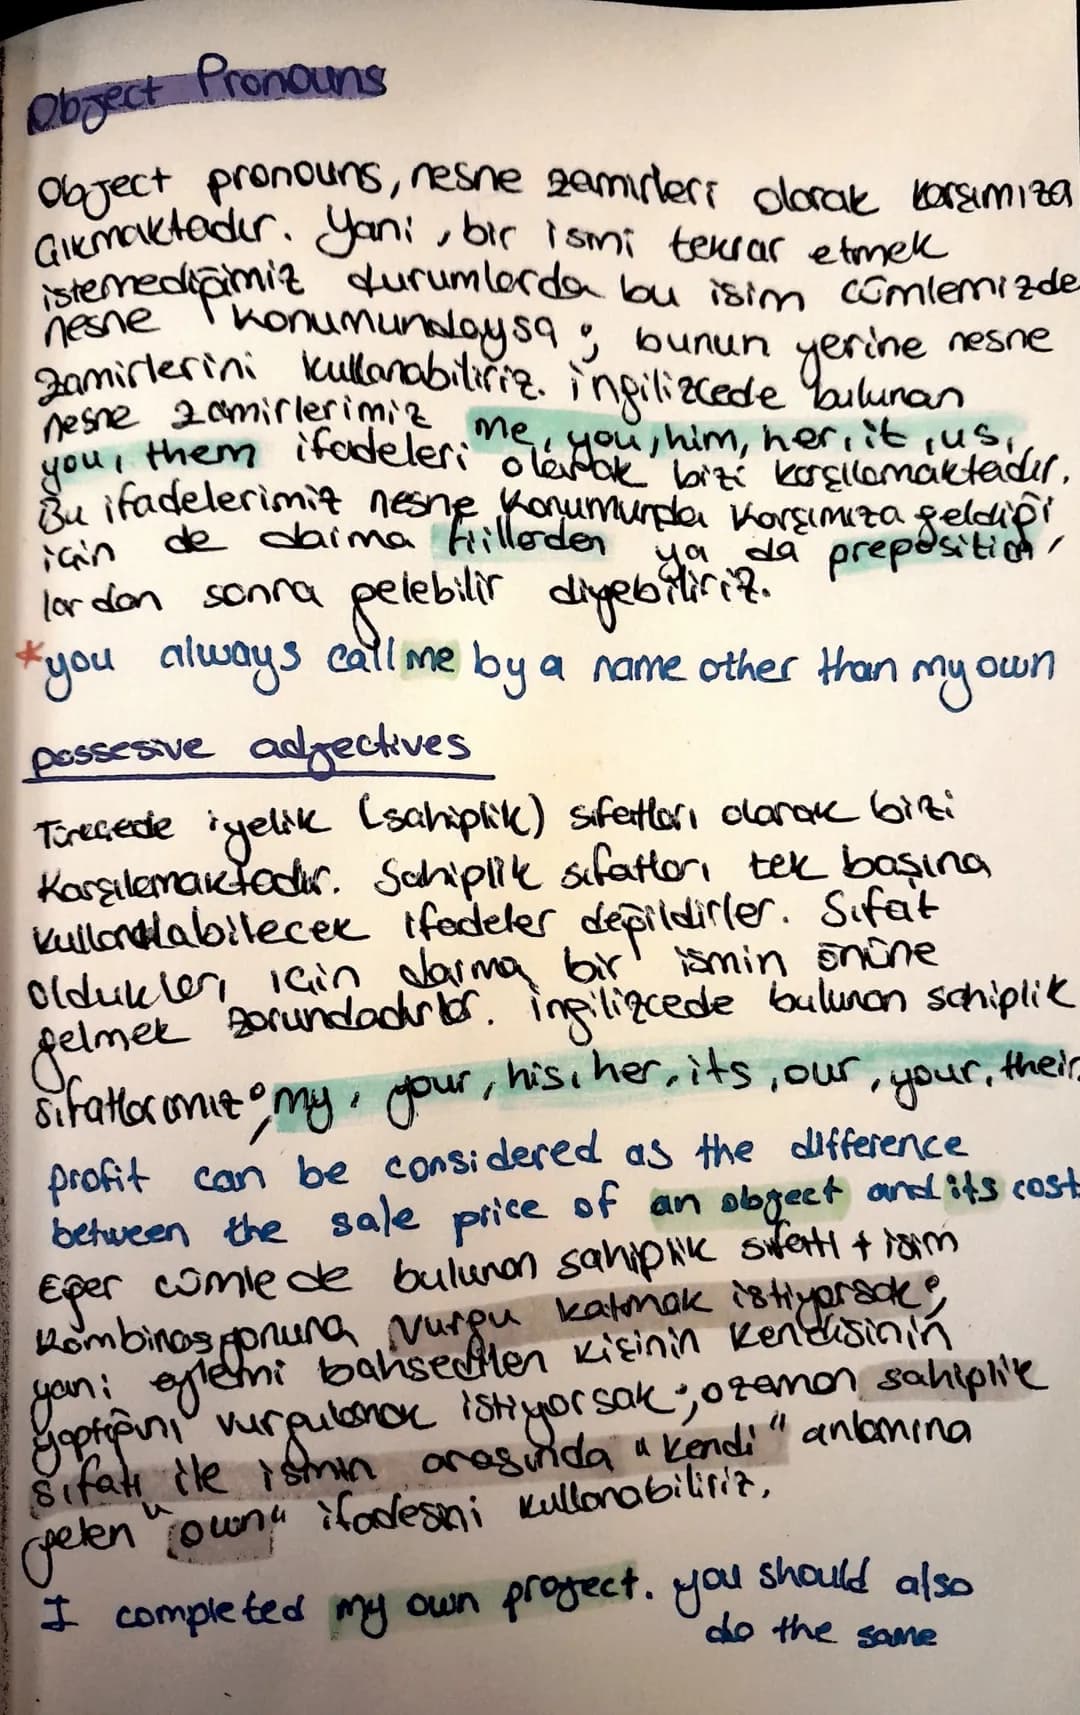 Object Pronouns
Object pronouns, nesne zamirleri olarak karşımıza
çıkmaktadır. Yani, bir ismi tekrar etmek
istemediğimiz durumlarda bu isim cümlemizde
nesne konumundaysa; bunun yerine nesne
zamirlerini kullanabiliriz. İngilizcede bulunan
nesne zamirlerimiz me, you, him, her, it, us,
you, them ifadeleri olarak bizi karşılamaktadır.
Bu ifadelerimiz nesne konumunda karşımıza geldiği
için de daima fiillerden ya da preposition'
lardan sonra gelebilir diyebiliriz.
*you always call me by a name other than my own
possesive adjectives
Türkçede iyelik (sahiplik) sıfatları olarak bizi
karşılamaktadır. Sahiplik sıfatları tek başına
kullanılabilecek ifadeler değildirler. Sıfat
oldukları için daima bir ismin önüne
gelmek zorundadırlar. İngilizcede bulunan sahiplik
sıfatlarımız; my, your, his, her, its, our, your, their
profit can be considered as the difference
between the sale price of an object and its cost
Eğer cümlede bulunan sahiplik sıfatı + isim
kombinasyonuna vurgu katmak istiyorsak;
yani eylemi bahsedilen kişinin kendisinin
yaptığını vurgulamak istiyorsak; o zaman sahiplik
sıfatı ile ismin arasında "kendi" anlamına
gelen "own" ifadesini kullanabiliriz.
I completed my own project. you should also
do the same